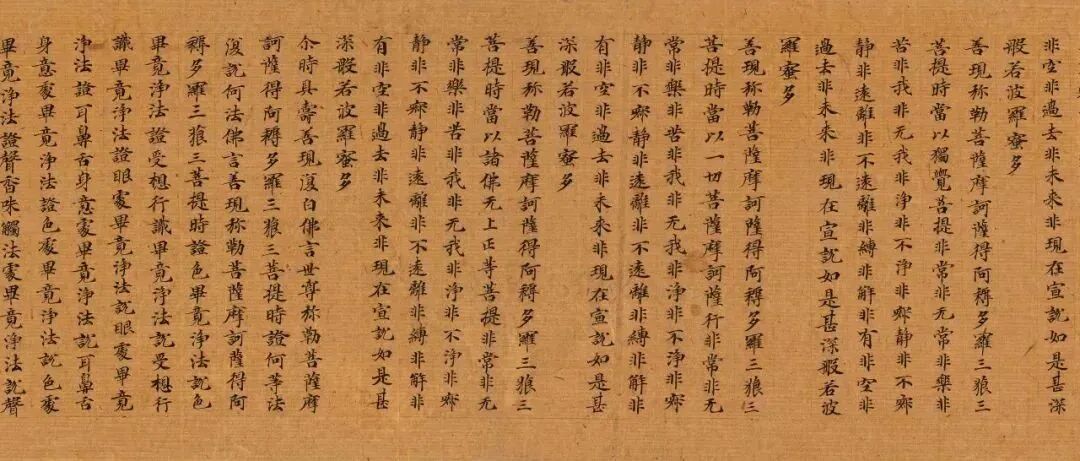 非空非過去非未來非現在宣說如是甚深
般若波羅蜜多
善現弥勒菩薩摩訶薩得阿耨多羅三藐三
菩提時當以獨覺菩提非常非无常非樂非
苦非我非无我非淨非不淨非寂靜非不寂
靜非遠離非不遠離非縛非解非有非空非
過去非未來非現在宣說如是甚深般若波
羅蜜多
善現弥勒菩薩摩訶薩得阿耨多羅三藐三
菩提時當以一切菩薩摩訶薩行非常非无
常非樂非苦非我非无我非淨非不淨非寂
靜非不寂靜非遠離非不遠離非縛非解非
有非空非過去非未來非現在宣說如是甚
深般若波羅蜜多
善現弥勒菩薩摩訶薩得阿耨多羅三藐三
菩提時當以諸佛无上正等菩提非常非无
常非樂非苦非我非无我非淨非不淨非寂
靜非不寂靜非遠離非不遠離非縛非解非
有非空非過去非未來非現在宣說如是甚
深般若波羅蜜多
尒時具壽善現復白佛言世尊弥勒菩薩摩
訶薩得阿耨多羅三藐三菩提時證何等法
復說何法佛言善現弥勒菩薩摩訶薩得阿
耨多羅三藐三菩提時證色畢竟淨法說色
畢竟淨法證受想行識畢竟淨法說受想行
識畢竟淨法證眼處畢竟淨法說眼處畢竟
淨法證耳鼻舌身意處畢竟淨法說耳鼻舌
身意處畢竟淨法證色處畢竟淨法說色處
畢竟淨法證聲香味觸法處畢竟淨法說聲